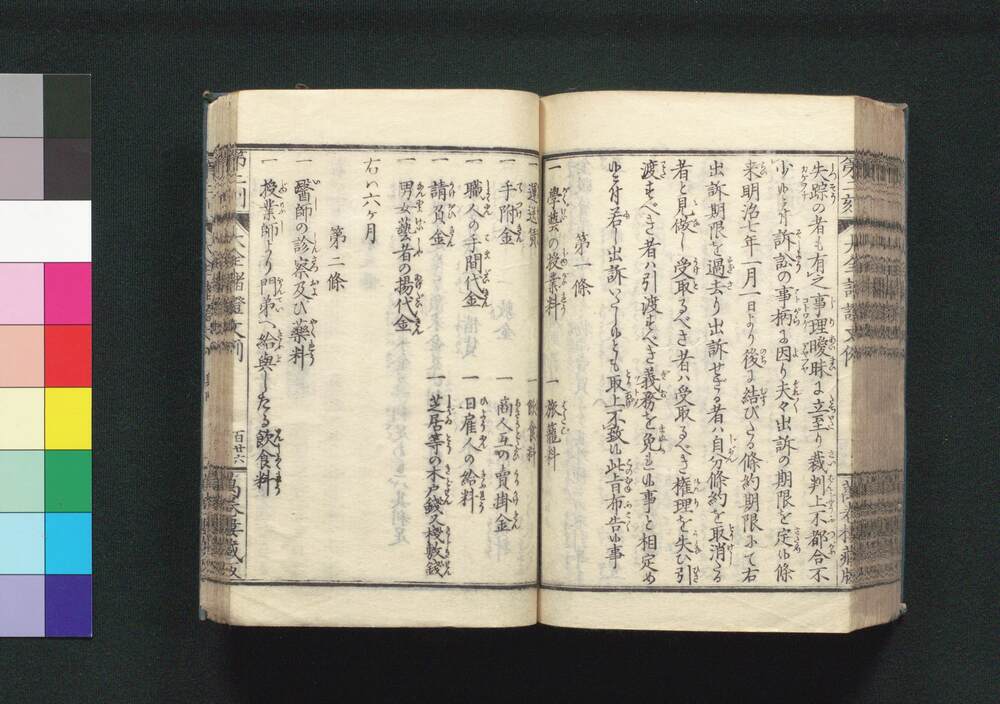 失踪の者も有之事理曖昧に立至り裁判上不都合不
少候に付訴訟の事柄に因り夫々出訴の期限を定候條
来明治七年一月一日より後に結びたる條約期限にて右
出訴期限を過去り出訴せざる者ハ自分條約を取消たる
者と見做し受取るべき者ハ受取るべき権理を失ひ引
渡すべき者ハ引渡すべき義務を免れ候事と相定め
候に付若し出訴いたし候とも取上不致候此旨布告候事
第一條
一 學藝の授業料 一 旅籠料
一 運送賃 一 飲食料
一 手附金 一 商人互の賣掛金
一 職人の手間代金 一 日雇人の給料
一 請負金 一 芝居等の木戸錢又桟敷錢
一 男女藝者の揚代金
右ハ六ケ月
第二條
一 醫師の診察及び藥料
一 授業師より門弟へ給與したる飲食料
百廿六